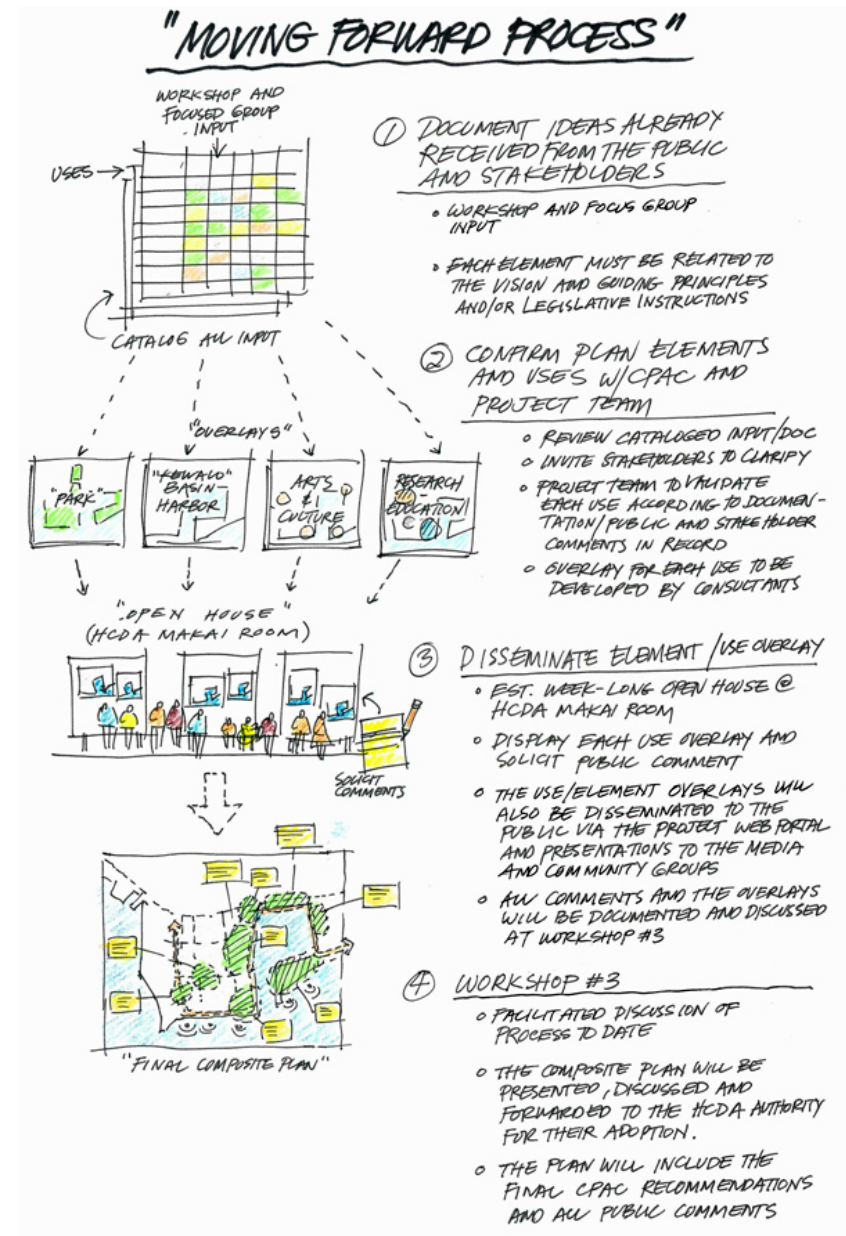 "MOVING FORWARD PROCESS"
WORKSHOP AND
FOCUSED GROUP
INPUT
USES
CATALOG ALL INPUT
"OVERLAYS"
"PARK"
"KEWALO"
BASIN
HARBOR
ARTS
&
CULTURE
RESEARCH
-
EDUCATION
"OPEN HOUSE"
(HCDA MAKAI ROOM)
SOLICIT
COMMENTS
"FINAL COMPOSITE PLAN"
1 DOCUMENT IDEAS ALREADY
RECEIVED FROM THE PUBLIC
AND STAKEHOLDERS
• WORKSHOP AND FOCUS GROUP
INPUT
• EACH ELEMENT MUST BE RELATED TO
THE VISION AND GUIDING PRINCIPLES
AND/OR LEGISLATIVE INSTRUCTIONS
2 CONFIRM PLAN ELEMENTS
AND USES W/CPAC AND
PROJECT TEAM
• REVIEW CATALOGED INPUT/DOC
• INVITE STAKEHOLDERS TO CLARIFY
• PROJECT TEAM TO VALIDATE
EACH USE ACCORDING TO DOCUMEN-
TATION/PUBLIC AND STAKEHOLDER
COMMENTS IN RECORD
• OVERLAY FOR EACH USE TO BE
DEVELOPED BY CONSULTANTS
3 DISSEMINATE ELEMENT/USE OVERLAY
• EST. WEEK-LONG OPEN HOUSE @
HCDA MAKAI ROOM
• DISPLAY EACH USE OVERLAY AND
SOLICIT PUBLIC COMMENT
• THE USE/ELEMENT OVERLAYS WILL
ALSO BE DISSEMINATED TO THE
PUBLIC VIA THE PROJECT WEB PORTAL
AND PRESENTATIONS TO THE MEDIA
AND COMMUNITY GROUPS
• ALL COMMENTS AND THE OVERLAYS
WILL BE DOCUMENTED AND DISCUSSED
AT WORKSHOP #3
4 WORKSHOP #3
• FACILITATED DISCUSSION OF
PROCESS TO DATE
• THE COMPOSITE PLAN WILL BE
PRESENTED, DISCUSSED AND
FORWARDED TO THE HCDA AUTHORITY
FOR THEIR ADOPTION.
• THE PLAN WILL INCLUDE THE
FINAL CPAC RECOMMENDATIONS
AND ALL PUBLIC COMMENTS